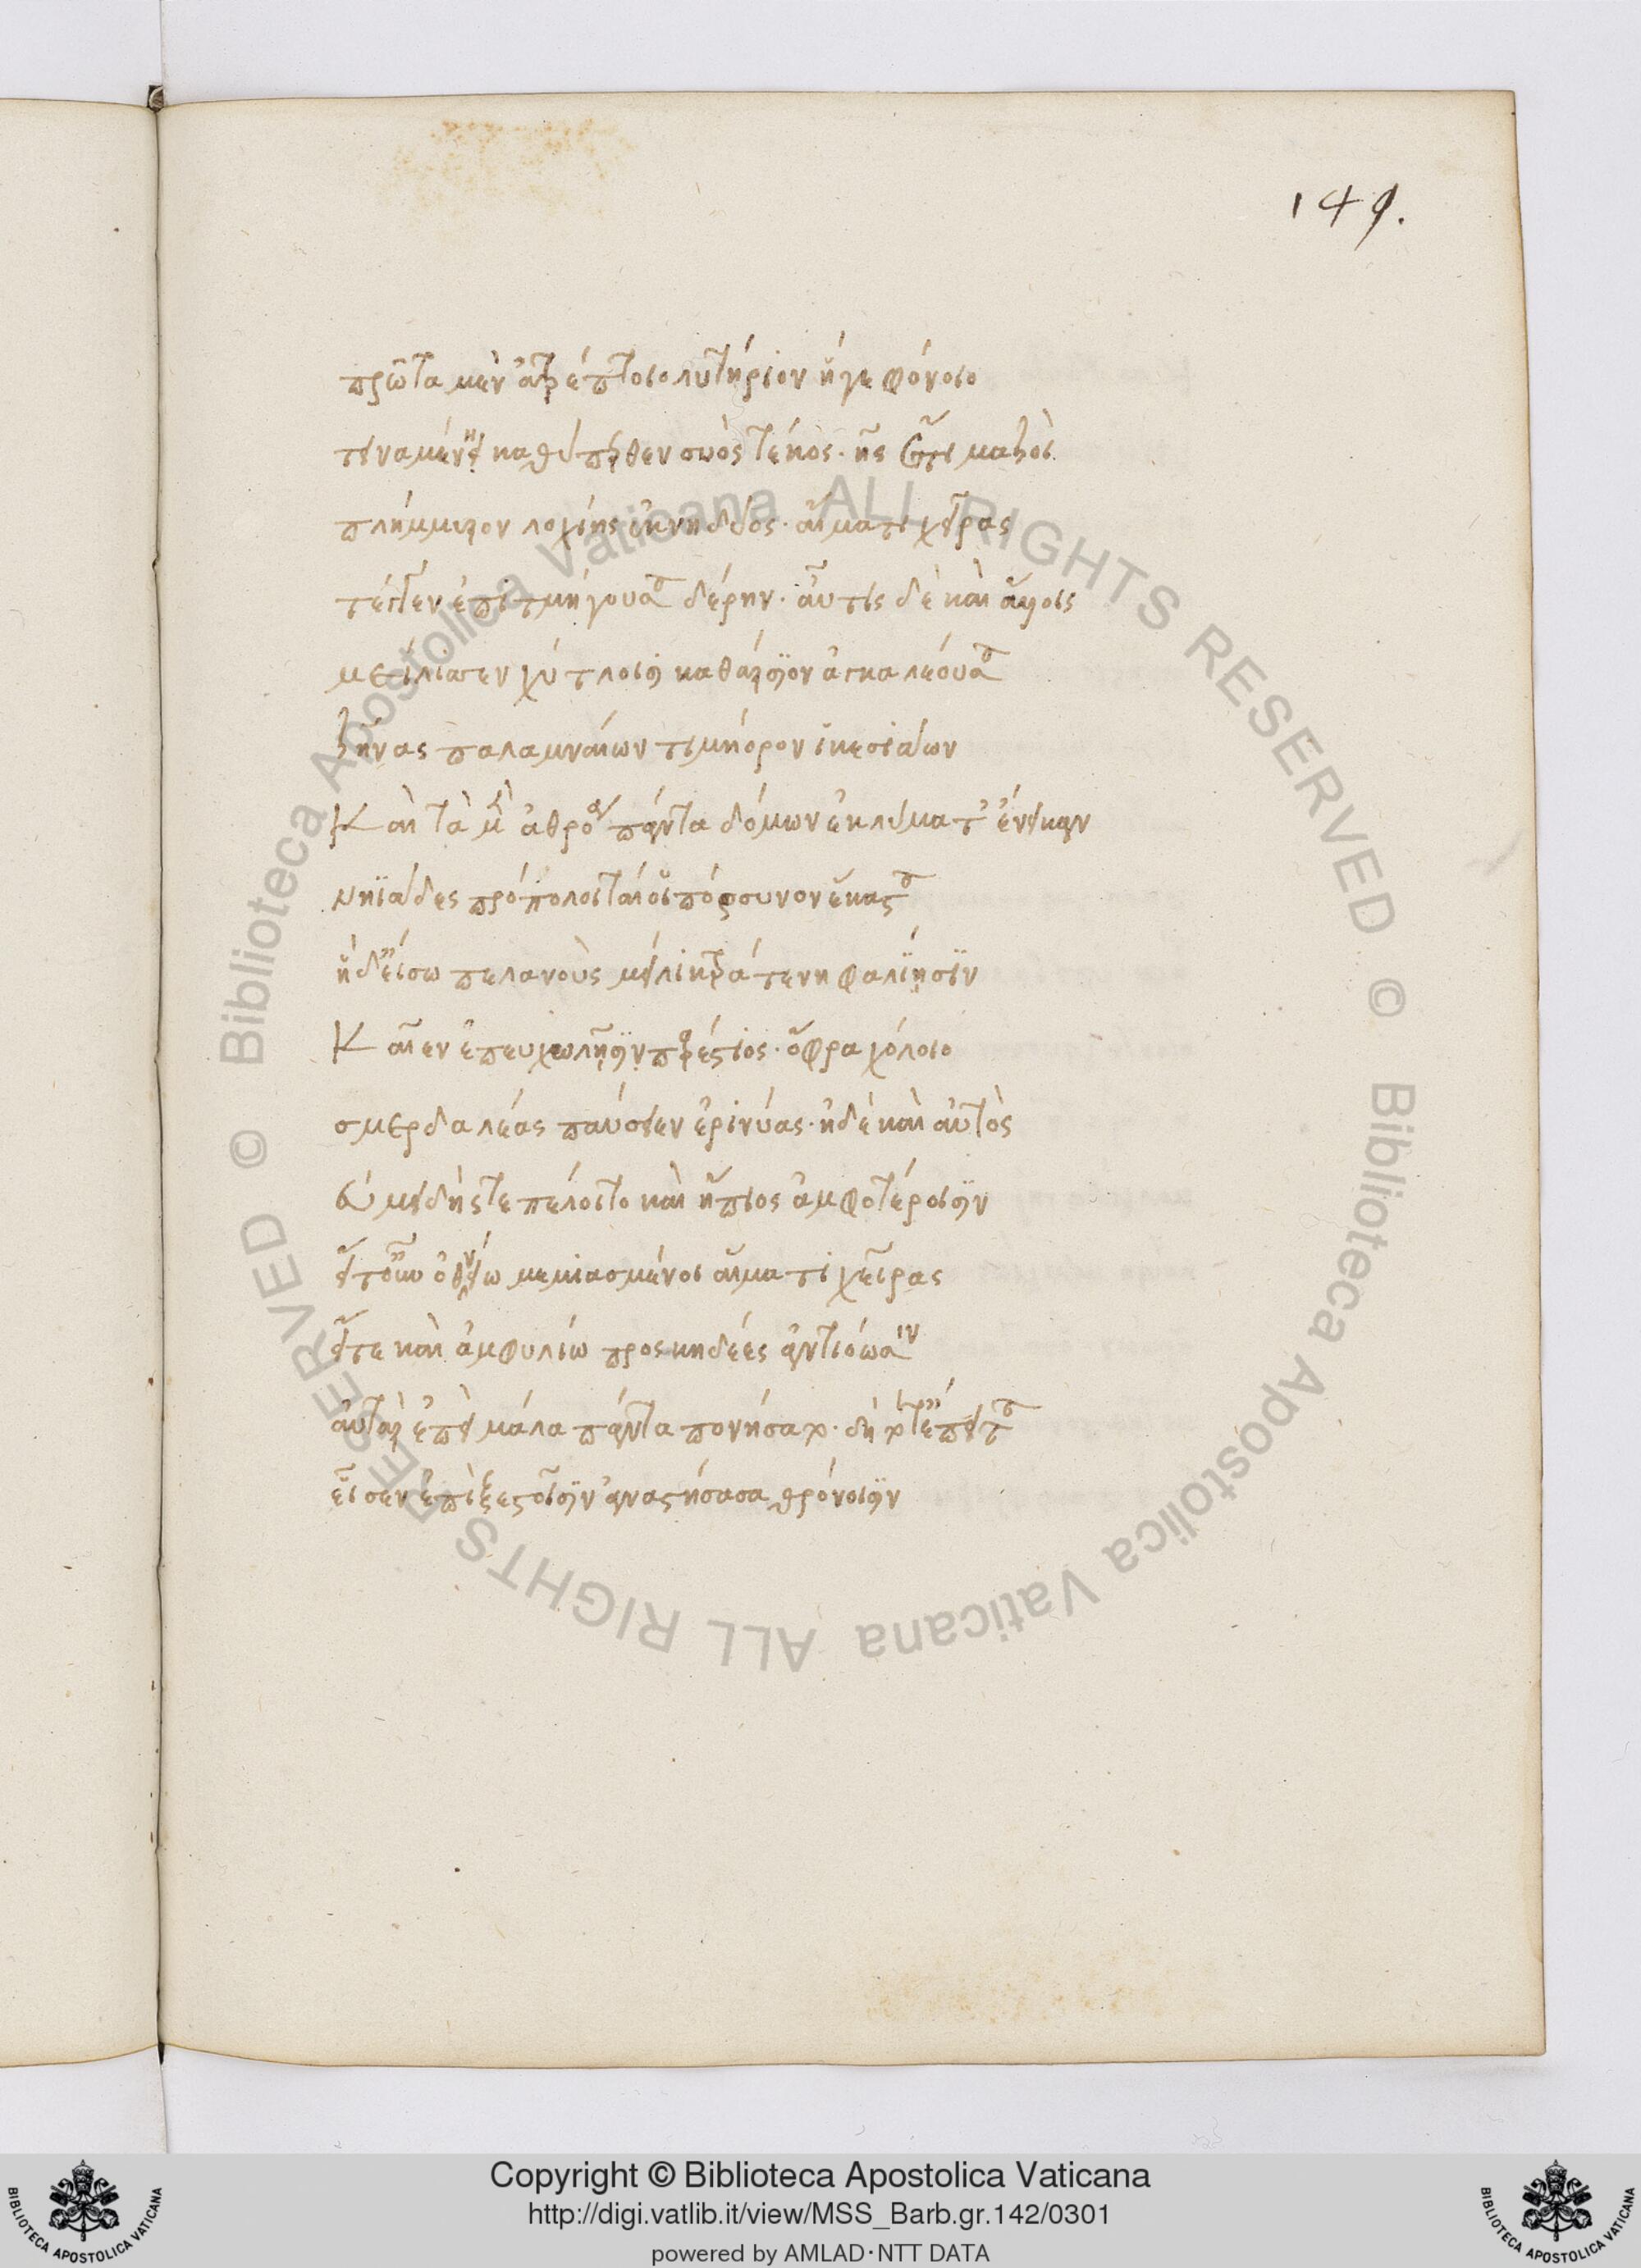 149.
πρῶτα μὲν ἀτρέπτοιο λυτήριον ἥγε φόνοιο
τειναμένη καθύπερθεν συὸς τέκος· ἧς ἔτι μαζοὶ
πλήμμυρον λοχίης ἐκ νηδύος· αἵματι χεῖρας
τέγγεν ἐπιτμήγουσα δέρην· αὖτις δὲ καὶ ἄλλοις
μείλισσεν χύτλοισι καθάρσιον ἀγκαλέουσα
ζῆνας παλαμναίων τιμήορον ἱκεσιάων
Καὶ τὰ μὲν ἀθρόα πάντα δόμων ἐκ λύματ' ἔνεικαν
νηϊάδες πρόπολοι ταί οἱ πόρσυνον ἕκαστα
ἡ δ' εἴσω πελανοὺς μείλικτρά τε νηφαλίῃσιν
Καῖεν ἐπ' εὐχωλῇσιν παρέστιος· ὄφρα χόλοιο
σμερδαλέας παύσειεν ἐρινύας· ἠδὲ καὶ αὐτὸς
εὐμειδής τε πέλοιτο καὶ ἤπιος ἀμφοτέροισιν
εἴτ' οὖν ὀθνείω μεμιασμένοι αἵματι χεῖρας
εἴτε καὶ ἐμφυλίω προσκηδέες ἀντιόωσιν
αὐτὰρ ἐπεὶ μάλα πάντα πονήσατο· δὴ τότ' ἔπειτα
εἷσεν ἐπὶ ξεστοῖσιν ἀναστήσασα θρόνοισιν
© Biblioteca Apostolica Vaticana ALL RIGHTS RESERVED
© Biblioteca Apostolica Vaticana ALL RIGHTS RESERVED
BIBLIOTECA APOSTOLICA VATICANA
Copyright © Biblioteca Apostolica Vaticana
http://digi.vatlib.it/view/MSS_Barb.gr.142/0301
powered by AMLAD·NTT DATA
BIBLIOTECA APOSTOLICA VATICANA